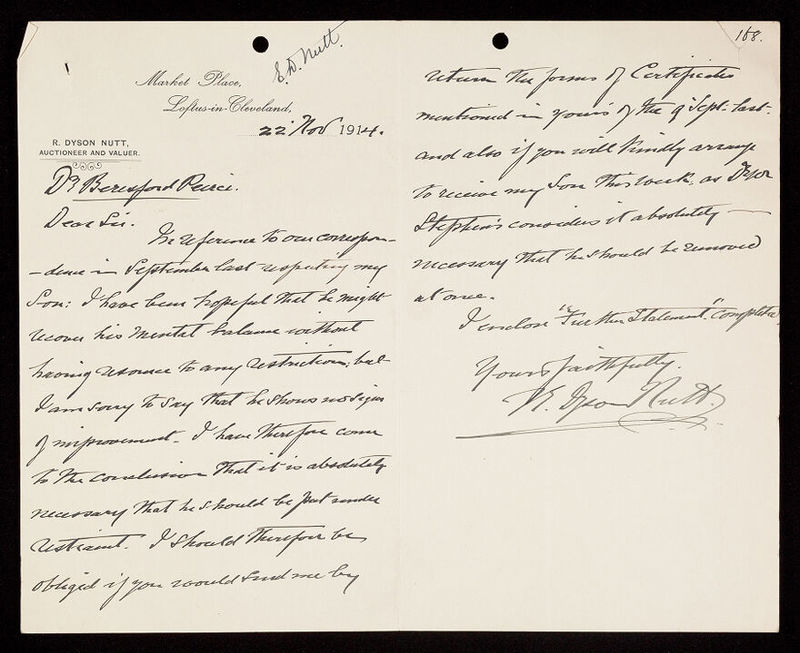 E.D. Nutt.
Market Place,
Loftus-in-Cleveland,
22 Nov 1914.
R. DYSON NUTT,
AUCTIONEER AND VALUER.
Dr Beresford Peirce.
Dear Sir.
In reference to our correspon-
-dence in September last respecting my
Son: I have been hopeful that he might
recover his mental balance without
having resource to any restriction; but
I am sorry to say that he shows no signs
of improvement. I have therefore come
to the conclusion that it is absolutely
necessary that he should be put under
restraint. I should therefore be
obliged if you would send me by
168.
return the forms of Certificates
mentioned in yours of the 9 Sept. last.
and also if you will kindly arrange
to receive my Son this week, as
Stephens considers it absolutely
necessary that he should be removed
at once.
I enclose "Further Statement" completed.
Yours faithfully.
R. Dyson Nutt.